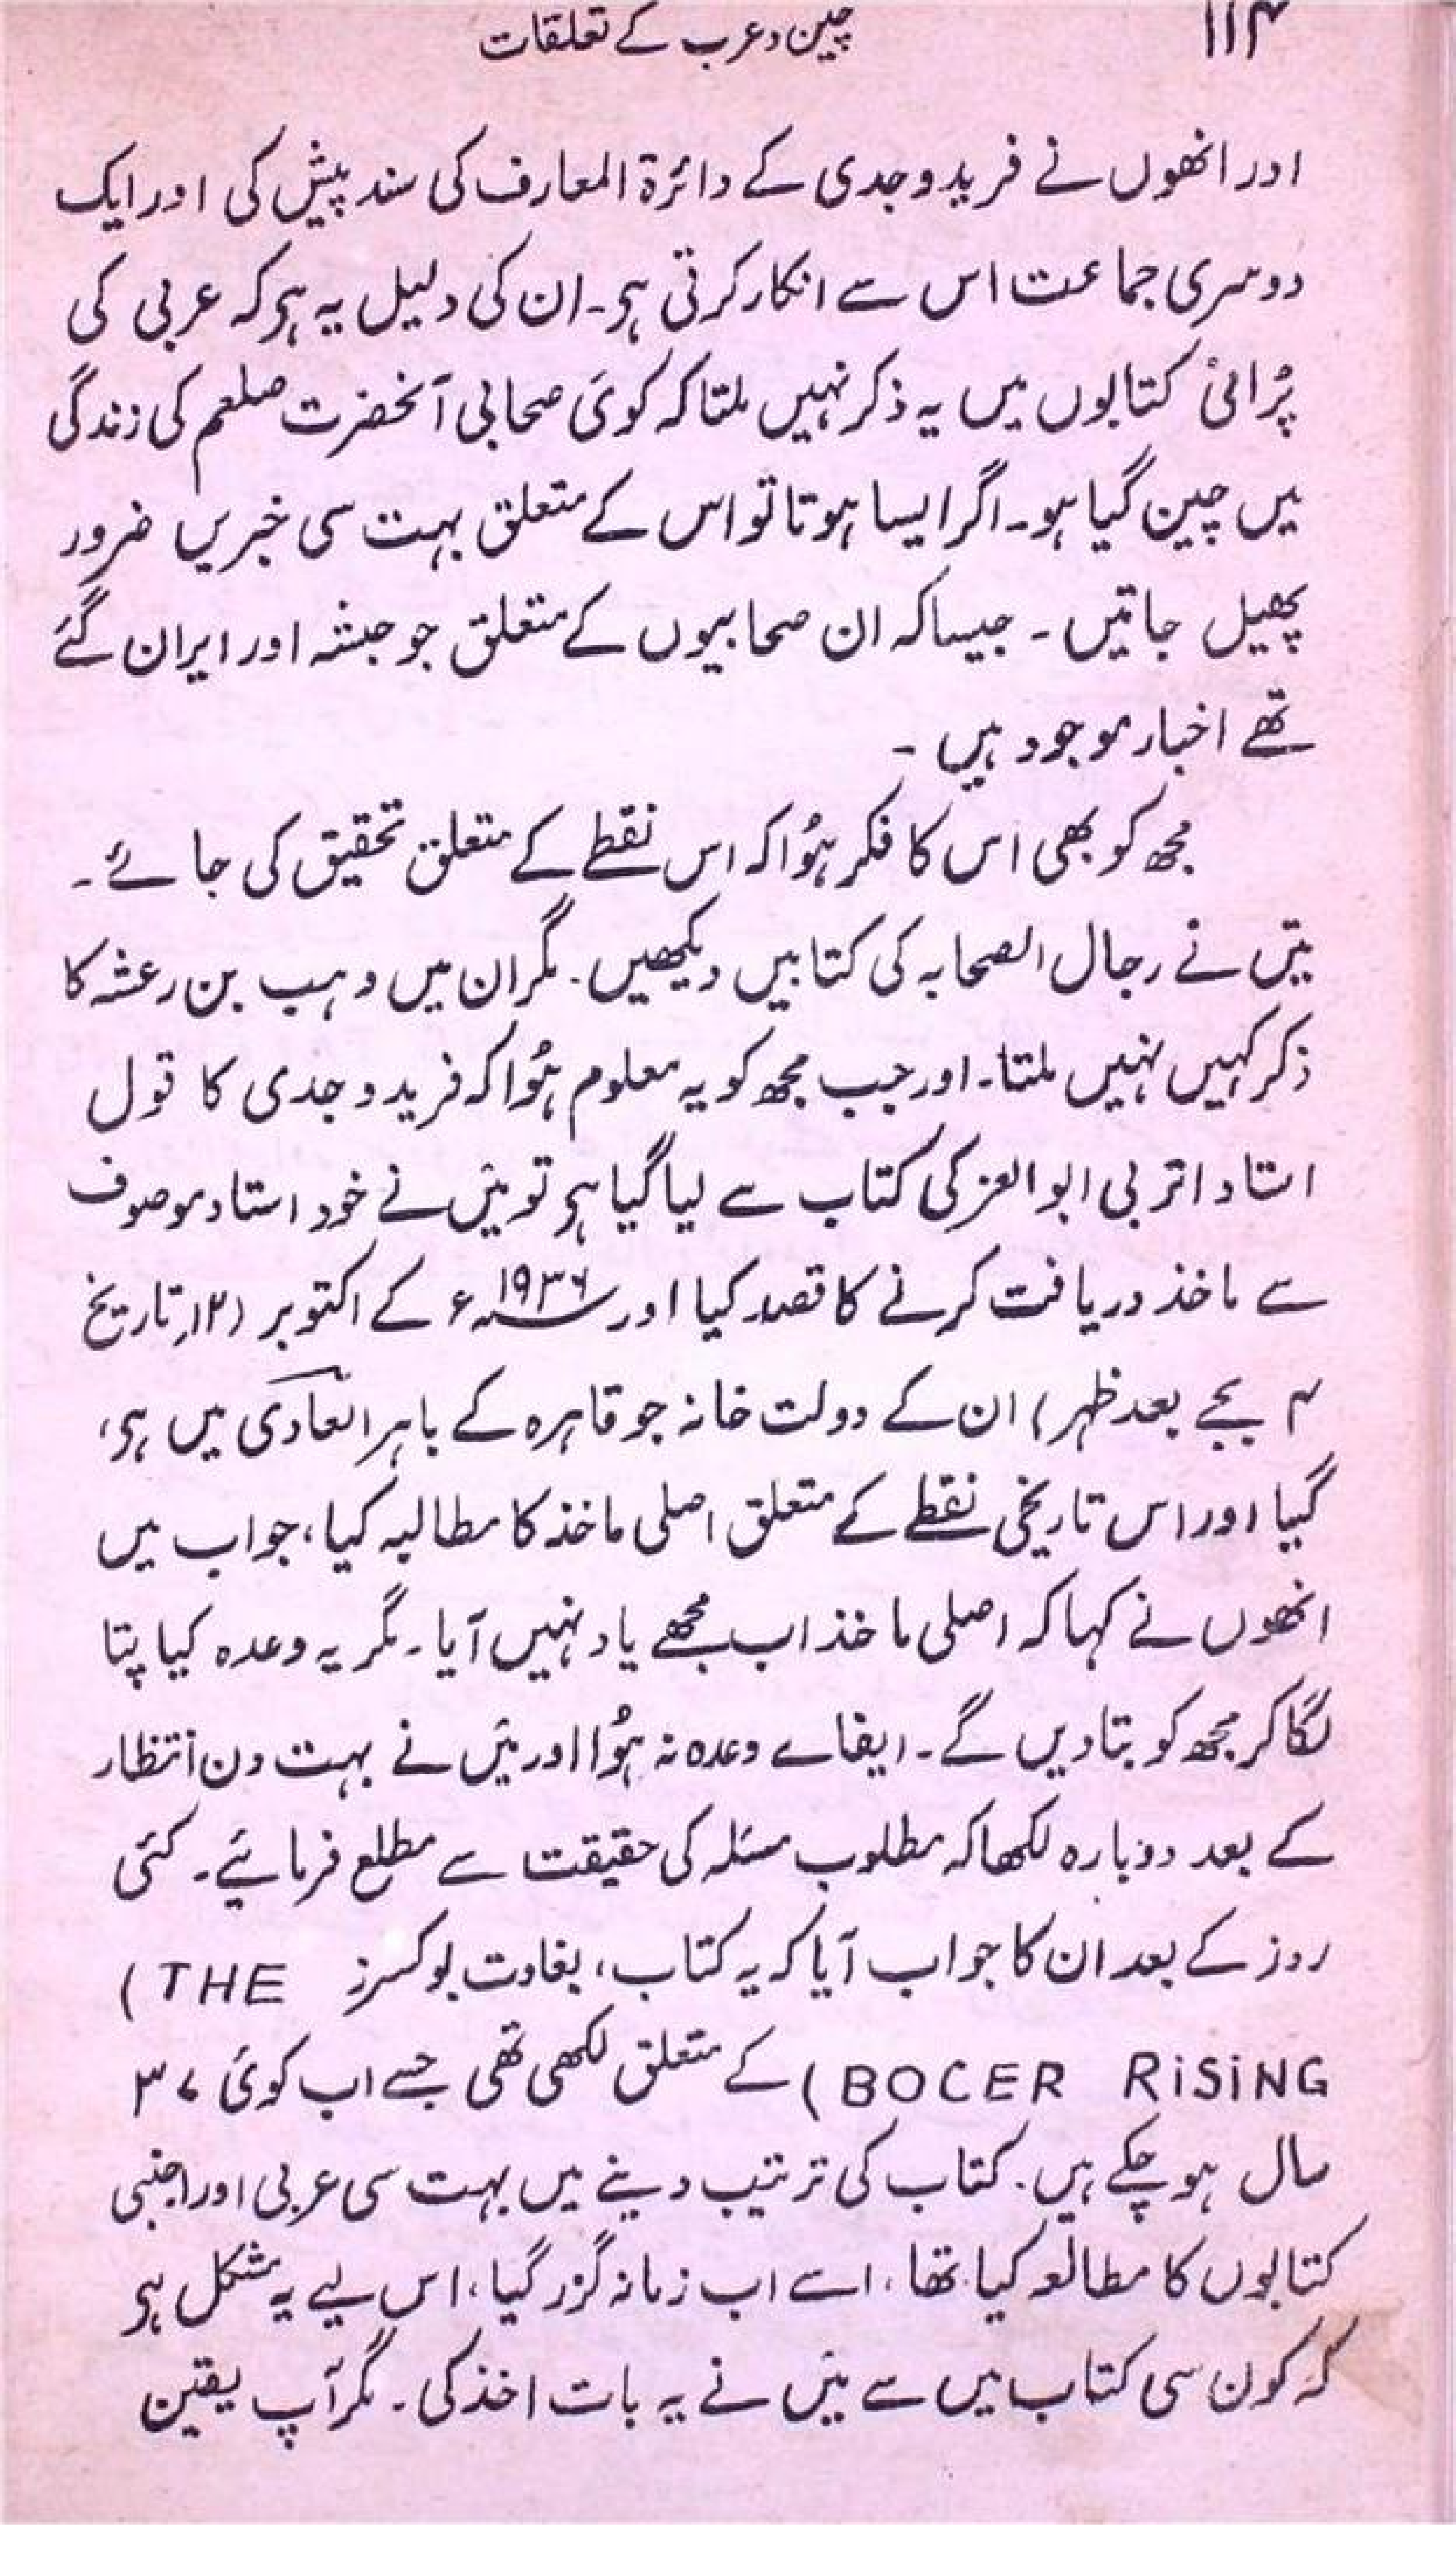 ۱۱۴
چین و عرب کے تعلقات
اور انھوں نے فرید وجدی کے دائرۃ المعارف کی سند پیش کی اور ایک
دوسری جماعت اس سے انکار کرتی ہو۔ ان کی دلیل یہ ہو کہ عربی کی
پُرانی کتابوں میں یہ ذکر نہیں ملتا کہ کوئی صحابی آنحضرت صلعم کی زندگی
میں چین گیا ہو۔ اگر ایسا ہوتا تو اس کے متعلق بہت سی خبریں ضرور
پھیل جاتیں ۔ جیسا کہ ان صحابیوں کے متعلق جو حبشہ اور ایران گئے
تھے اخبار موجود ہیں ۔
مجھ کو بھی اس کا فکر ہُوا کہ اس نقطے کے متعلق تحقیق کی جائے ۔
میَں نے رجال الصحابہ کی کتابیں دیکھیں۔ مگر ان میں وہب بن رعشہ کا
ذکر کہیں نہیں ملتا۔ اور جب مجھ کو یہ معلوم ہُوا کہ فرید وجدی کا قول
استاد اتربی ابوالعز کی کتاب سے لیا گیا ہو تو میَں نے خود استاد موصوف
سے ماخذ دریافت کرنے کا قصد کیا اور ۱۹۳۶ء کے اکتوبر (۱۲ تاریخ
۴ بجے بعد ظہر) ان کے دولت خانہ جو قاہرہ کے باہر المعادی میں ہو،
گیا اور اس تاریخی نقطے کے متعلق اصلی ماخذ کا مطالبہ کیا، جواب میں
انھوں نے کہا کہ اصلی ماخذ اب مجھے یاد نہیں آیا۔ مگر یہ وعدہ کیا پتا
لگا کر مجھ کو بتا دیں گے۔ ایفاے وعدہ نہ ہُوا اور میَں نے بہت دن انتظار
کے بعد دوبارہ لکھا کہ مطلوب مسئلہ کی حقیقت سے مطلع فرمائیے۔ کئی
روز کے بعد ان کا جواب آیا کہ یہ کتاب، بغاوت بوکسرز (THE
BOCER RiSiNG) کے متعلق لکھی تھی جسے اب کوئی ۳۷
سال ہو چکے ہیں۔ کتاب کی ترتیب دینے میں بہت سی عربی اور اجنبی
کتابوں کا مطالعہ کیا تھا، اسے اب زمانہ گزر گیا، اس لیے یہ مشکل ہو
کہ کون سی کتاب میں سے میَں نے یہ بات اخذ کی۔ مگر آپ یقین